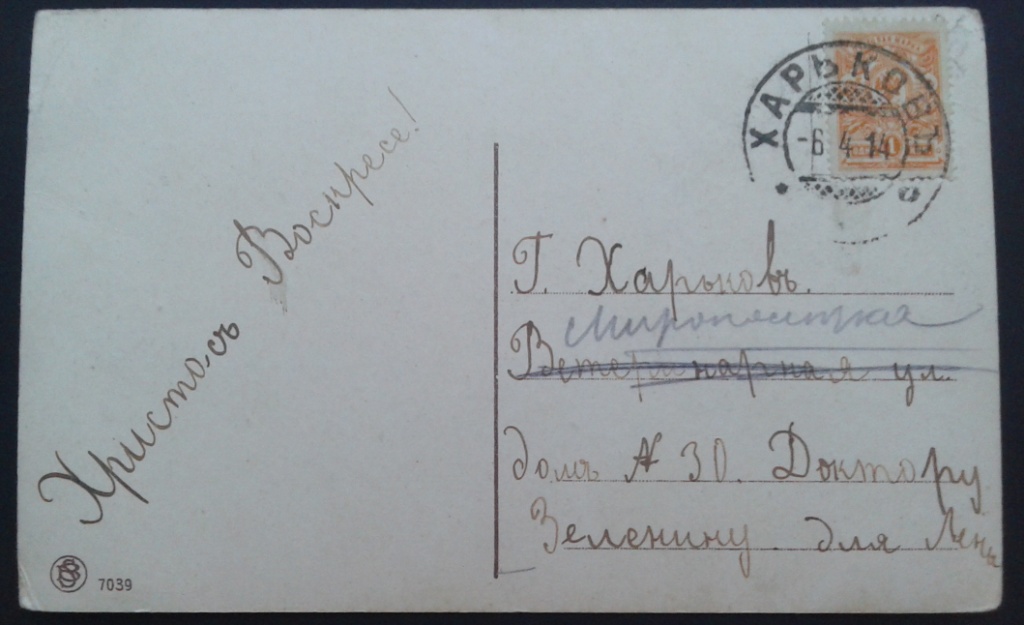 Христосъ Воскресе!
ХАРЬКОВЪ
-6.4.14
Г. Харьковъ.
Ветеринарная ул.
домъ № 30. Доктору
Зеленину. для Лены
7039